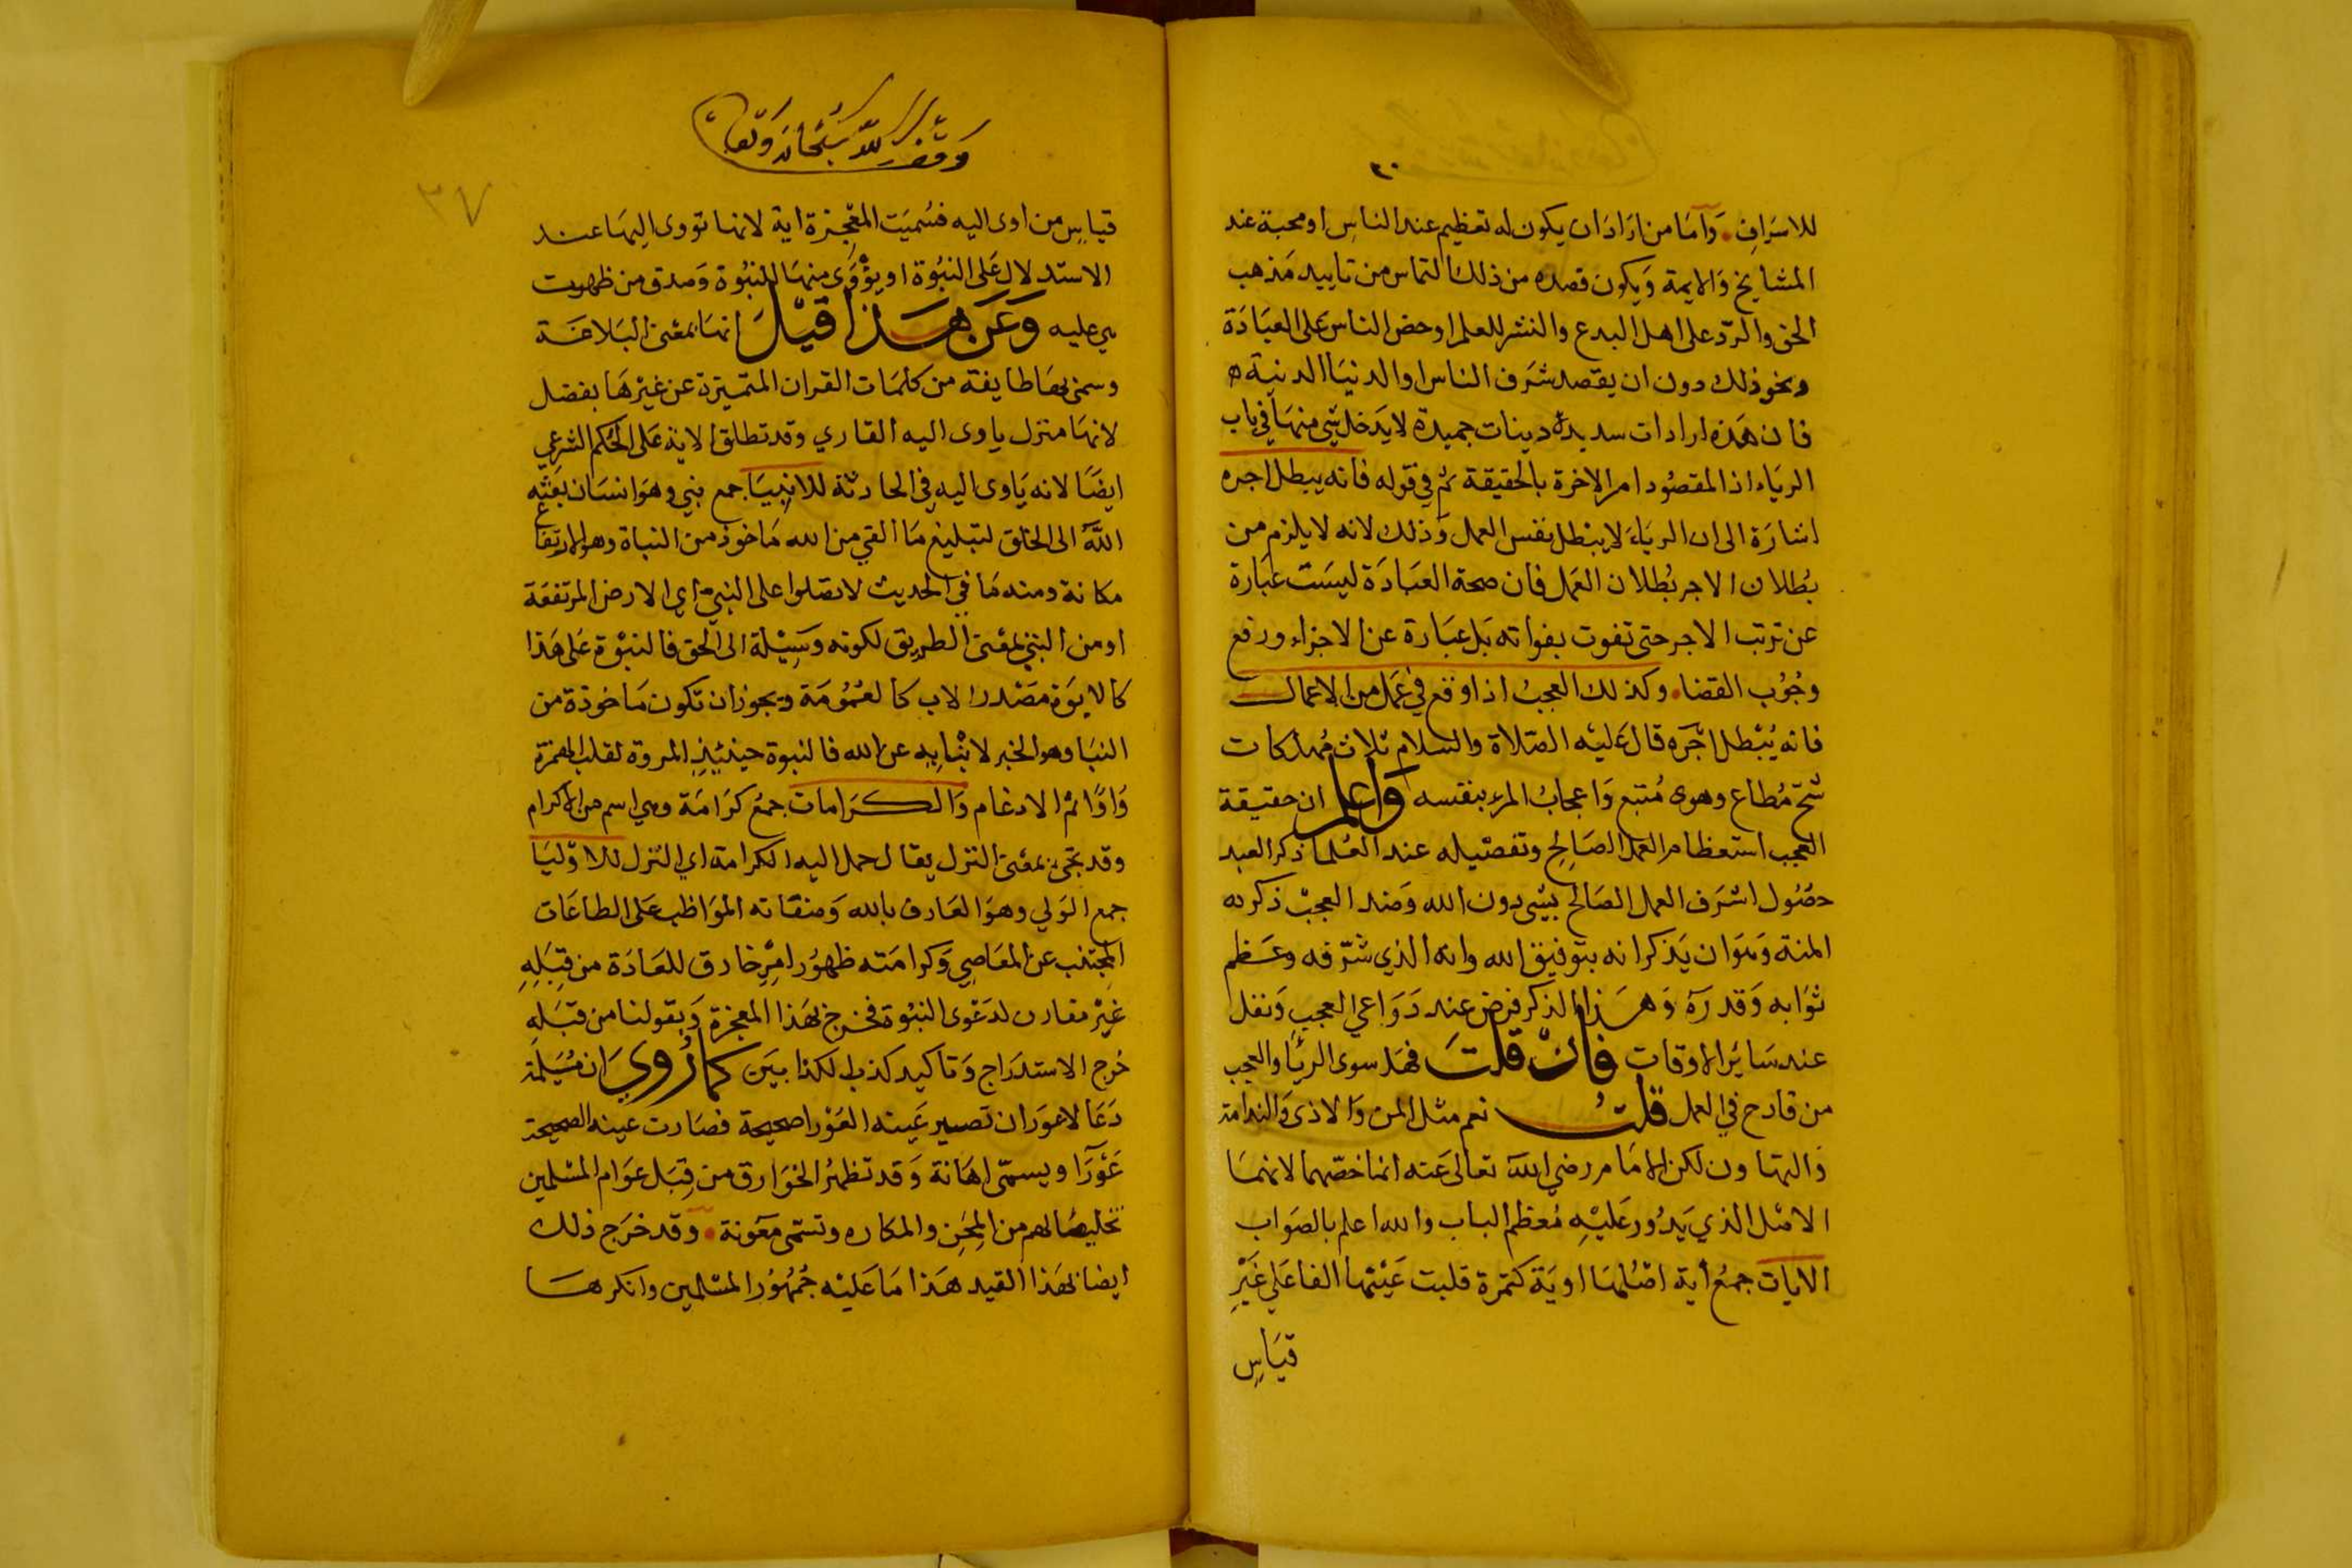 للاسراف. وَأمّا من ارَادَ ان يكون له تعظيم عند الناسِ او محبة عند
المشايخ وَالايمة وَيكون قصده من ذلك التماس من تاييد مَذهب
الحق والردّ على اهل البدع والنشر للعلم او حض الناس عَلى العبَادَة
ونحو ذلك دون ان يقصد شَرَف الناس او الدنيَا الدنية
فان هَذه ارادات سديدة ونيات حميدة لا يَدخل شي منهَا في باب
الريَاء اذ المقصُود امر الاخرة بالحقيقة ثم في قوله فانه يبطل اجره
اشارَة الى ان الريَاءَ لا يبْطل نفس العمل وَذلك لانه لا يلزم من
بُطلان الاجر بُطلان العَمل فان صحة العبَادَة ليسَت عبَارة
عن ترتب الاجر حتى تفوت بفواته بَل عبَارة عن الاجزاء ورفع
وجُوب القضا. وكذلك العجبُ اذا وقع في عَمل من الاعمال
فانه يُبْطل اجْرَه قال عَليْه الصّلاة والسلام ثلاث مُهلكات
شحّ مُطاع وهوى مُتبع وَاعجابُ المرء بنفسه وَاعلم ان حقيقة
العجب استعظام العمل الصَالِح وتفصْيله عند العُلما ذكر العبد
حصُول اشرَف العمل الصَالح بشْي دون الله وَضد العجبْ ذكره
المنة وَهوَ ان يَذكر انه بتوفيق الله وانه الذي شرّفه وعَظم
ثوَابه وَقدرَهُ وَهَذا الذكر فرض عند دَوَاعي العجبِ وَنفل
عند سَائرِ الاوقات فَانْ قلتَ فهَل سوى الريَا والعجب
من قادح في العمل قلتُ نعم مثل المن وَالاذى وَالندامة
وَالتهاون لكن الامَام رضي اللهُ تعالى عَنه انما خصّهما لانهمَا
الاصْل الذي يَدُور عَليْهِ مُعظم الباب والله اعلم بالصوَاب
الايات جمعُ اية اصْلهَا اويَة كتمرة قلبت عَيْنها الفا عَلي غَيْرِ
قيَاسِ
وقف لله سُبْحَانه وَتعَالى
٣٧
قياسِ من اوى اليه فسُميَت المعْجِزة اية لانها تؤوى اليهَا عند
الاستدلال عَلى النبُوة او يؤْوَى منهَا للنبُوة وَصدق من ظهرت
هي عليه وَعَن هَذا قيْلَ انهَا بمعْنى البَلاغَة
وسمى بهَا طايفة من كلمَات القران المتميّزة عن غيْرهَا بفصْل
لانهَا منزل ياوى اليه القاري وقد تطلق الاية عَلى الحُكم الشرعي
ايضًا لانه يَاوى اليه في الحادثة للانبِيَا جمع نبي وهوَ انسَان بعثه
اللهُ الى الخلق لتبليغ مَا القي من الله مَاخوذ من النباة وهو الارتفاع
مكانة ومنه مَا في الحديث لا تصَلوا على النبي اي الارض المرتفعَة
او من النبيْ بمعْنى الطريق لكونه وَسِيْلة الى الحق فالنبوّة عَلى هَذا
كالابوَة مصْدر الاب كالعُمُومَة ويجوز ان تكون مَاخوذة من
النبَا وهو الخبر لانبْايه عن الله فالنبوة حينئِذٍ المروة لقلب الهمزة
وَاوًا ثم الادغام وَالكرَامات جمعُ كرَامَة وهي اسم من الاكرام
وقد تجئ بمعْنى النزل يقال حمل اليه الكرامة اي النزل للاوْليَا
جمع الوَلي وهوَ العَارف بالله وَصفَاته الموَاظب عَلى الطاعَات
المجتنب عن المعَاصِي وَكرامَته ظهوُر امْرٍ خارق للعَادَة من قِبَلِهِ
غيْر مقارن لدَعْوى النبُوة فخرج بهَذا المعجزة وَبقولنا من قبَلهِ
خرج الاستدرَاج وَتاكيد كذب الكذابيَن كما رُويَ ان مُسَيْلمة
دَعَا لاعوَر ان تصير عَينه العَوْرا صحيحة فصَارت عَينه الصحيحة
عَوْرَآ ويسمّى اهَانة وَقد تظهرُ الخوَارق من قِبَل عوَام المسْلمين
تخليصًا لهم من المِحَن والمكاره وتسَمى معَونة. وَقد خرَج ذلك
ايضا بهَذا القيد هَذا مَا عَليْه جُمْهُوُر المسْلمين وانكرهَا